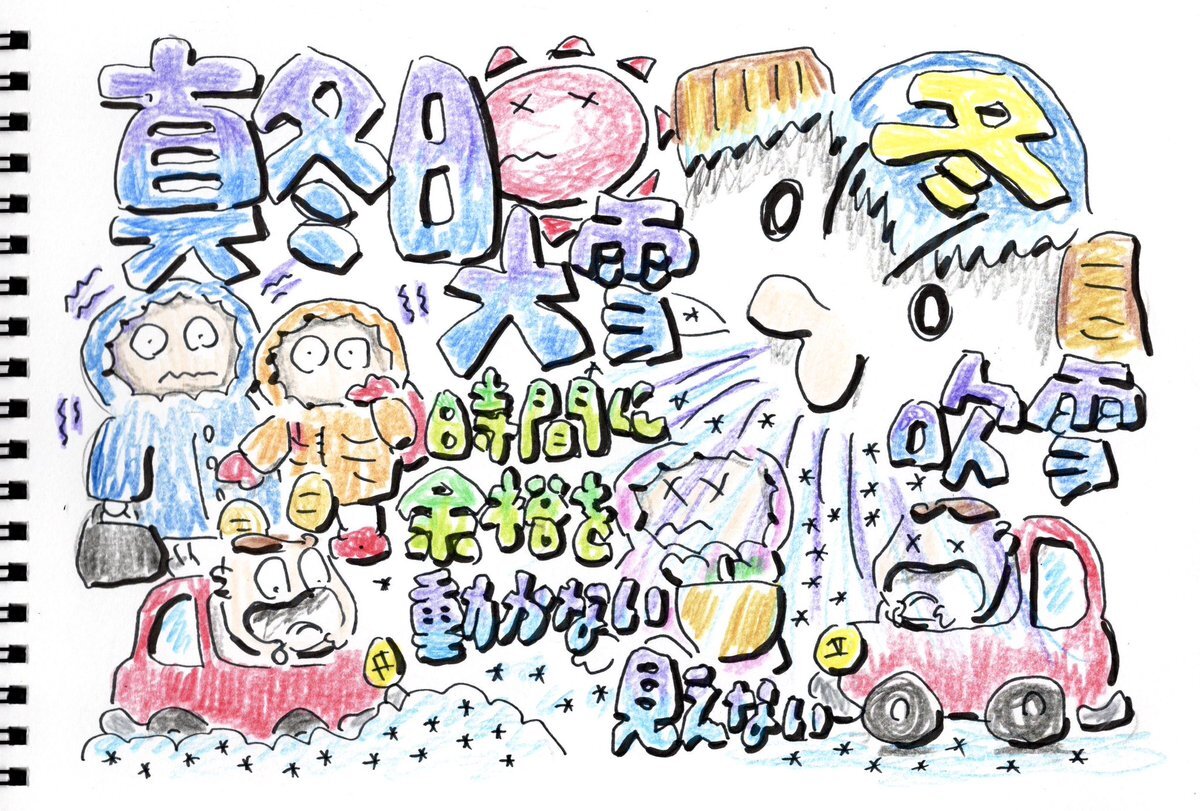 真冬日
冬
大雪
吹雪
時間に
余裕を
動かない
見えない